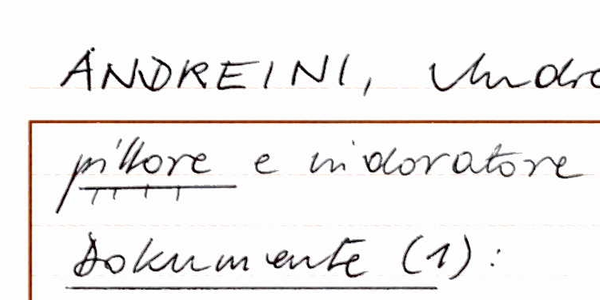 ANDREINI, Andre
pittore e indoratore
Dokumente (1):